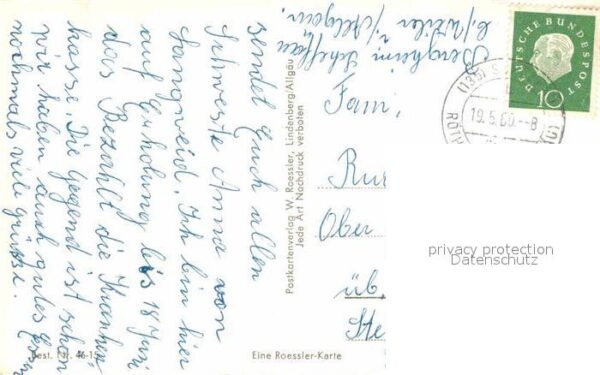 sendet Euch allen
Schwester Anna von
Langweid. Ich bin hier
auf Erholung bis 18 Juni
das Bezahlt die Kranken-
kasse. Die Gegend ist schön
wir haben auch gutes
nochmals viele Grüsse.
Bergheim Scheffau
b/Weiler i/Allgäu.
Fam.
Rur
Ober
üb.
Ste
DEUTSCHE BUNDESPOST
10
(13b) S
19.5.60.--8
RÖTH
Postkartenverlag W. Roessler, Lindenberg/Allgäu
Jede Art Nachdruck verboten
Best. Nr. 46-15
Eine Roessler-Karte
privacy protection
Datenschutz